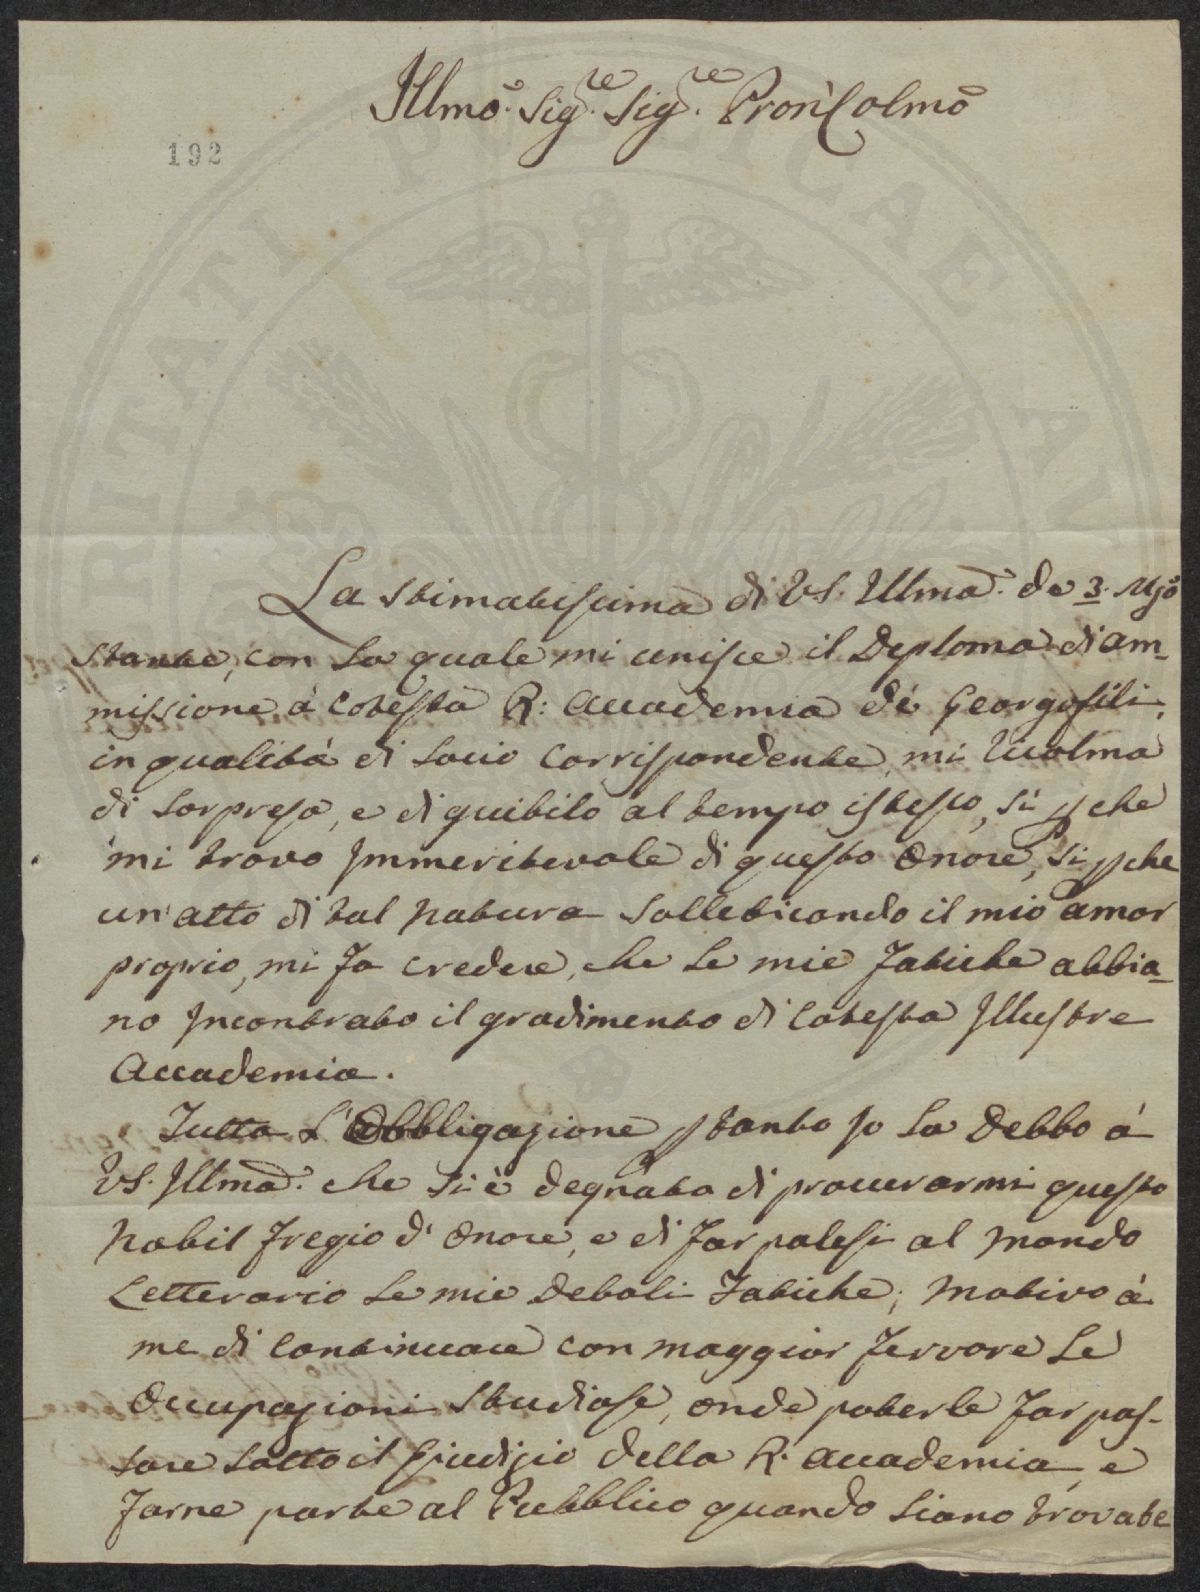 Illmo. Sig.re Sig.re Pron Colmo
192
La stimatissima di VS. Illma. de 3. Ago
stante, con la quale mi unisce il Deploma di am-
missione à cotesta R: Accademia de Georgofili,
in qualità di Socio Corrispondente, mi ricolma
di sorpresa, e di guibilo al tempo istesso, si p che
mi trovo Immeritevole di questo Onore, si p che
un' atto di tal Natura solleticando il mio amor
proprio, mi fa credere, che le mie fatiche abbia-
no Incontrato il gradimento di cotesta Illustre
Accademia.
Tutta l'Obbligazione p tanto Io la Debbo à
VS. Illma. che si è degnata di procurarmi questo
Nobil fregio d' Onore, e di far palesi al Mondo
Letterario le mie Deboli fatiche; Motivo à
me di Continuare con maggior fervore le
Occupazioni Studiose, onde poterle far pas-
sare sotto il Giudizio della R. Accademia, e
farne parte al Pubblico quando siano trovate